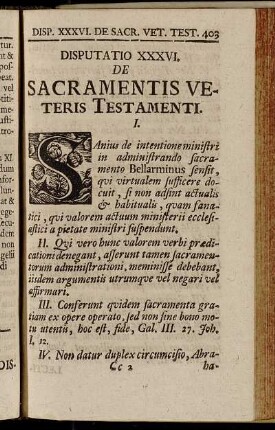 DISP. XXXVI. DE SACR. VET. TEST. 403
DISPUTATIO XXXVI.
DE
SACRAMENTIS VE-
TERIS TESTAMENTI.
I.
SAnius de intentione ministri
in administrando sacra-
mento Bellarminus sensit,
qui virtualem sufficere do-
cuit, si non adsint actualis
& habitualis, quam fana-
tici, qui valorem actuum ministerii ecclesi-
astici a pietate ministri suspendunt.
II. Qvi vero hunc valorem verbi prædi-
cationi denegant, asserunt tamen sacramen-
torum administrationi, meminisse debebant,
iisdem argumentis utrumqve vel negari vel
affirmari.
III. Conferunt qvidem sacramenta gra-
tiam ex opere operato, sed non sine bono mo-
tu utentis, hoc est, fide, Gal. III. 27. Joh.
I. 12.
IV. Non datur duplex circumcisio, Abra-
Cc 2
ha-